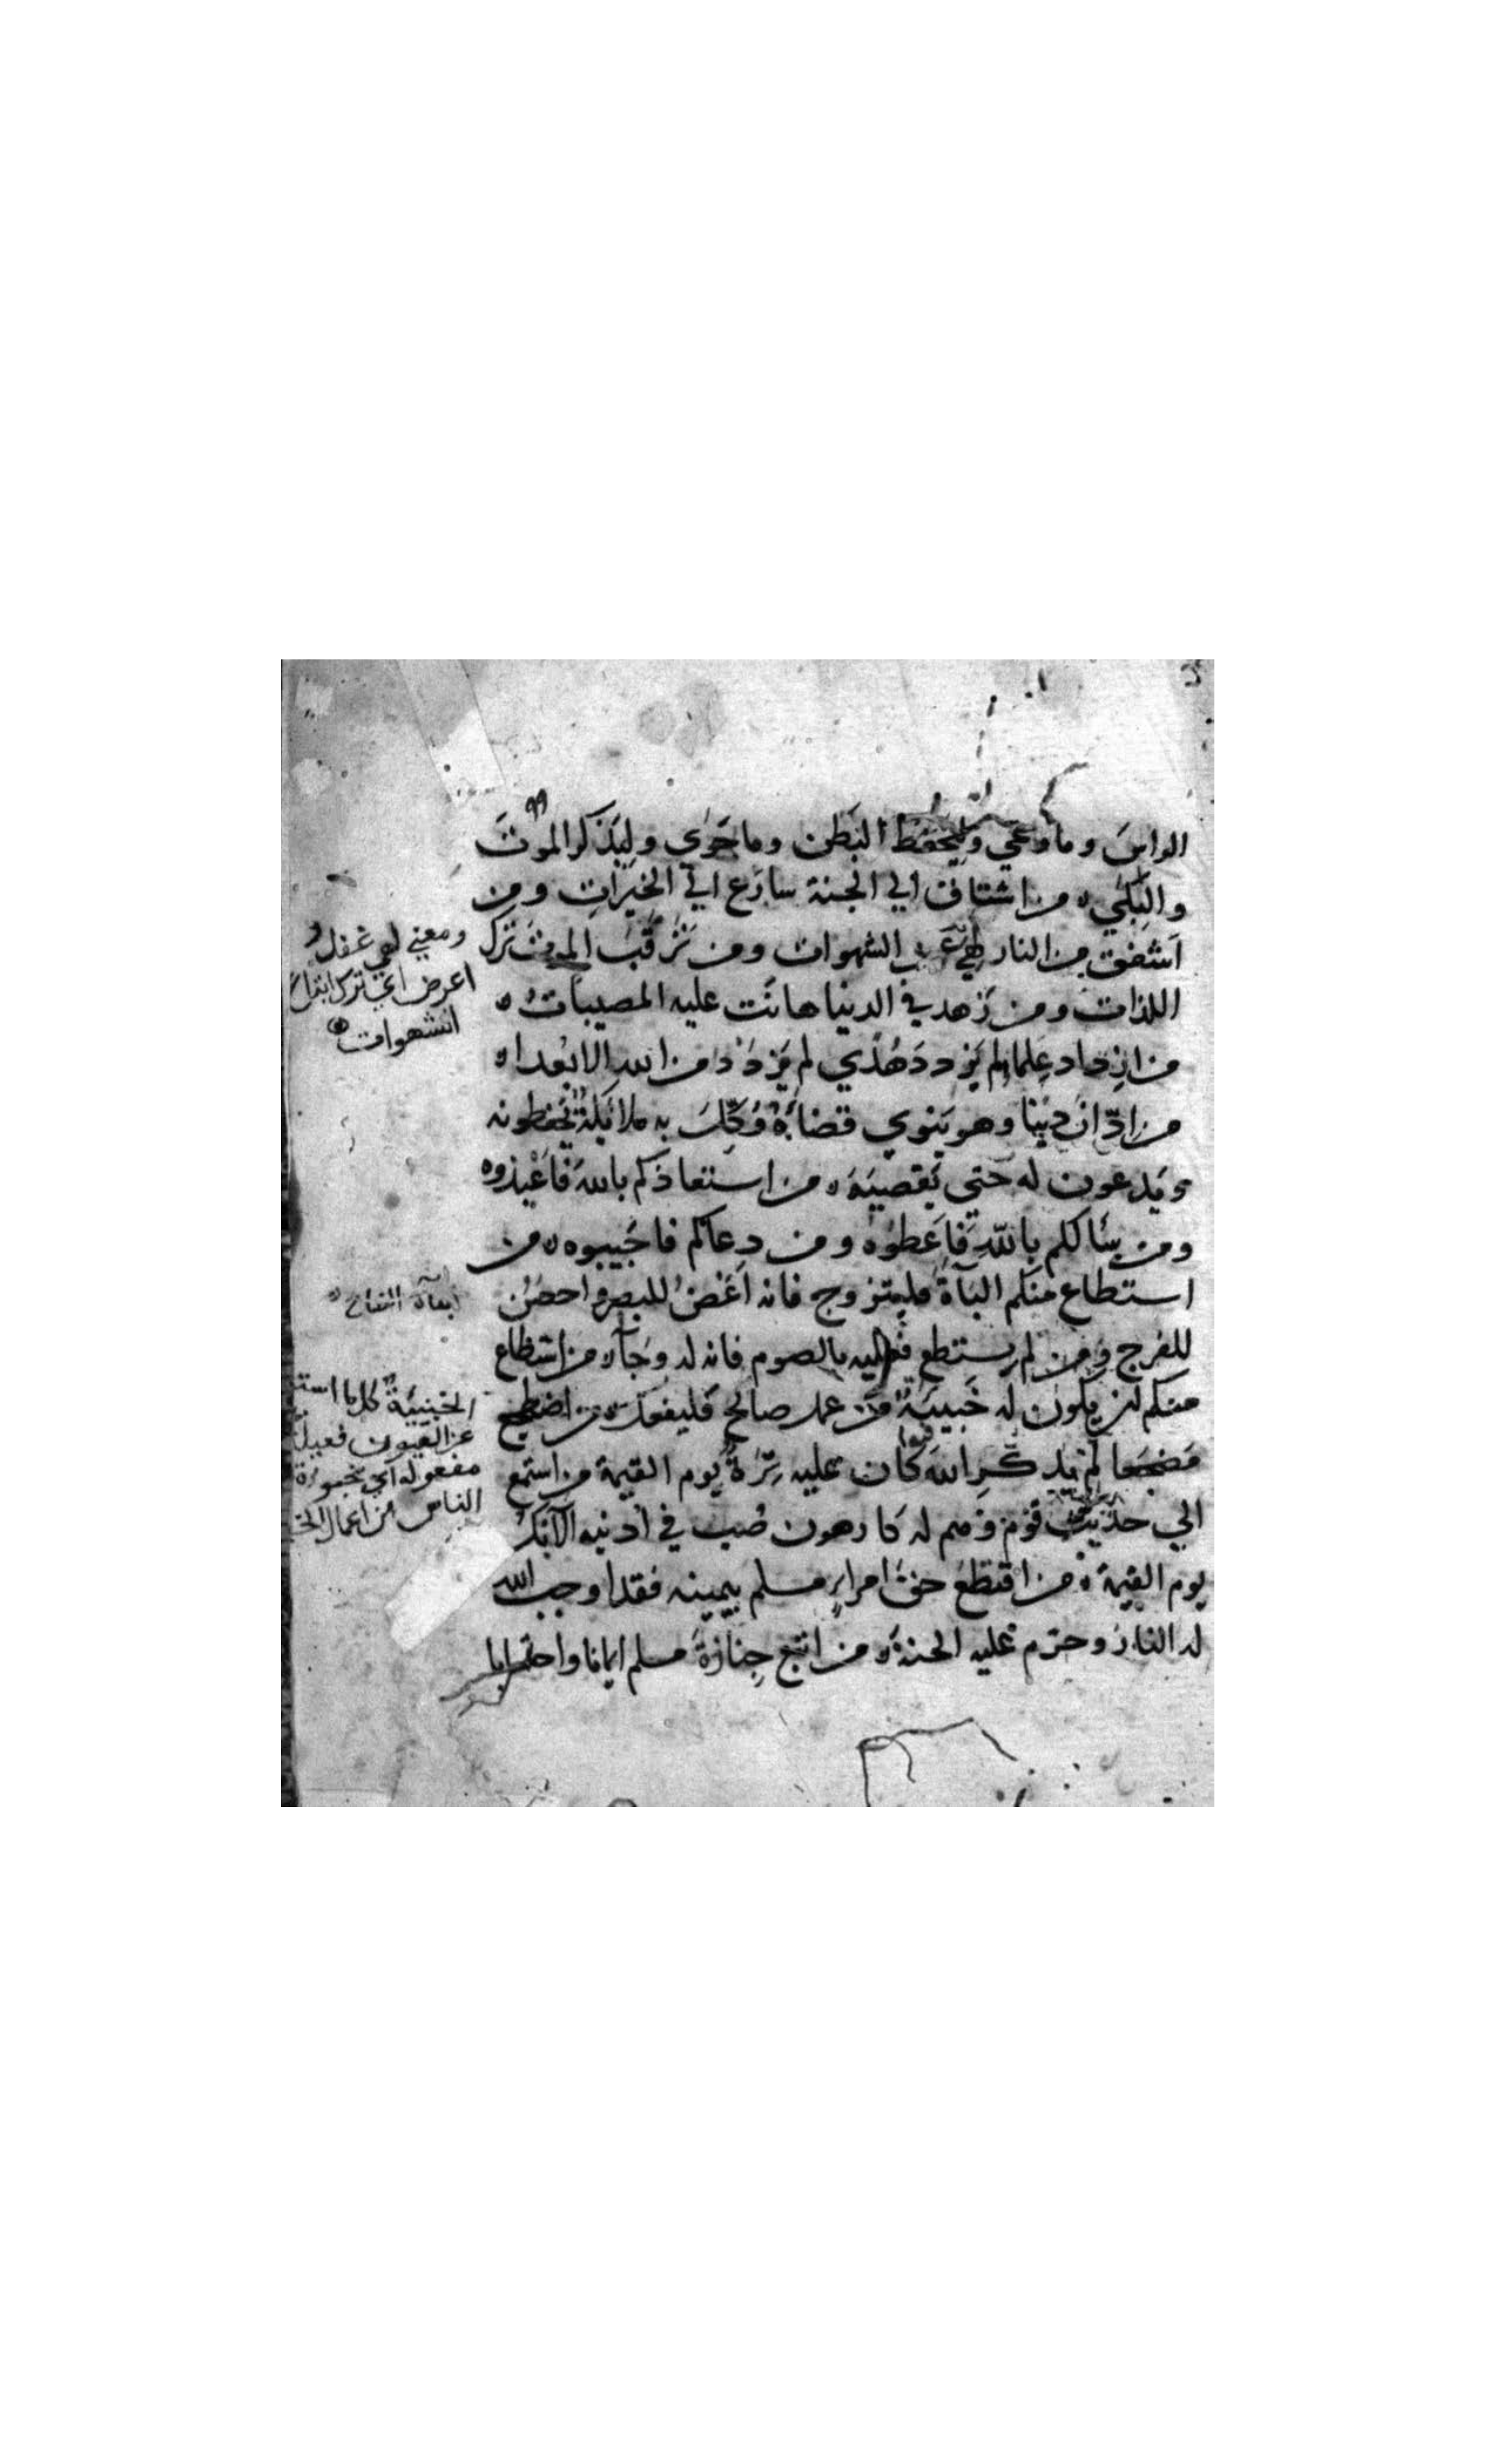 الراسَ وما وعي وليحفظ البَطن وما حَوَي وليَذكر الموتَ
والبِلَي ه من اشتاق الي الجنة سارَع الي الخيرات ومن
اَشفق من النار لهي عن الشهوات ومن تَرَقّبَ الموت ترك
اللذات ومن زَهد في الدنيا هانَت عليه المصيبات ه
من ازداد عِلما ولم يَزدد هُدَي لم يَزدَد من الله الا بُعدا ه
من ادّان دَينا وهو يَنوي قضاءَه وُكِّلَ به ملائكة يَحفظونه
ويَدعون له حَتي يَقضيَه ه من استعاذكم بالله فاَعيذوه
ومن سَالكم باللهِ فَاَعطوُه ومن دعاكم فاجَيبوه ه من
استطاع منكم البَآة فليتزوج فانه اَغَضُّ للبصر واحصَنُ
للفرج ومن لم يستطع فعليه بالصوم فانه له وِجَآء من استطاع
منكم ان يكون له خَبيئة من عمل صالح فليفعل ه من اضطجع
مَضجَعا لم يذكرِ اللهَ فيه كان عليه تِرَةً يوم القيمة من استمع
الي حديث قوم وهم له كارهون صُب في اُذنيه الآنُك
يوم القيمة ه من اقتطع حقَّ امراءٍ مسلم بيمينه فقد اوجب الله
له النارَ وحَرّم عليه الجنة ه من اتبع جِنازةَ مسلم ايمانا واحتسابا
ومعني لهي غفل و
اعرض اي ترك
الشهوات
الباة النكاح
الخبيئة كل ما استتر
عن العيون فعيلة
مفعوله اي مخبوءة
الناس من اعمال